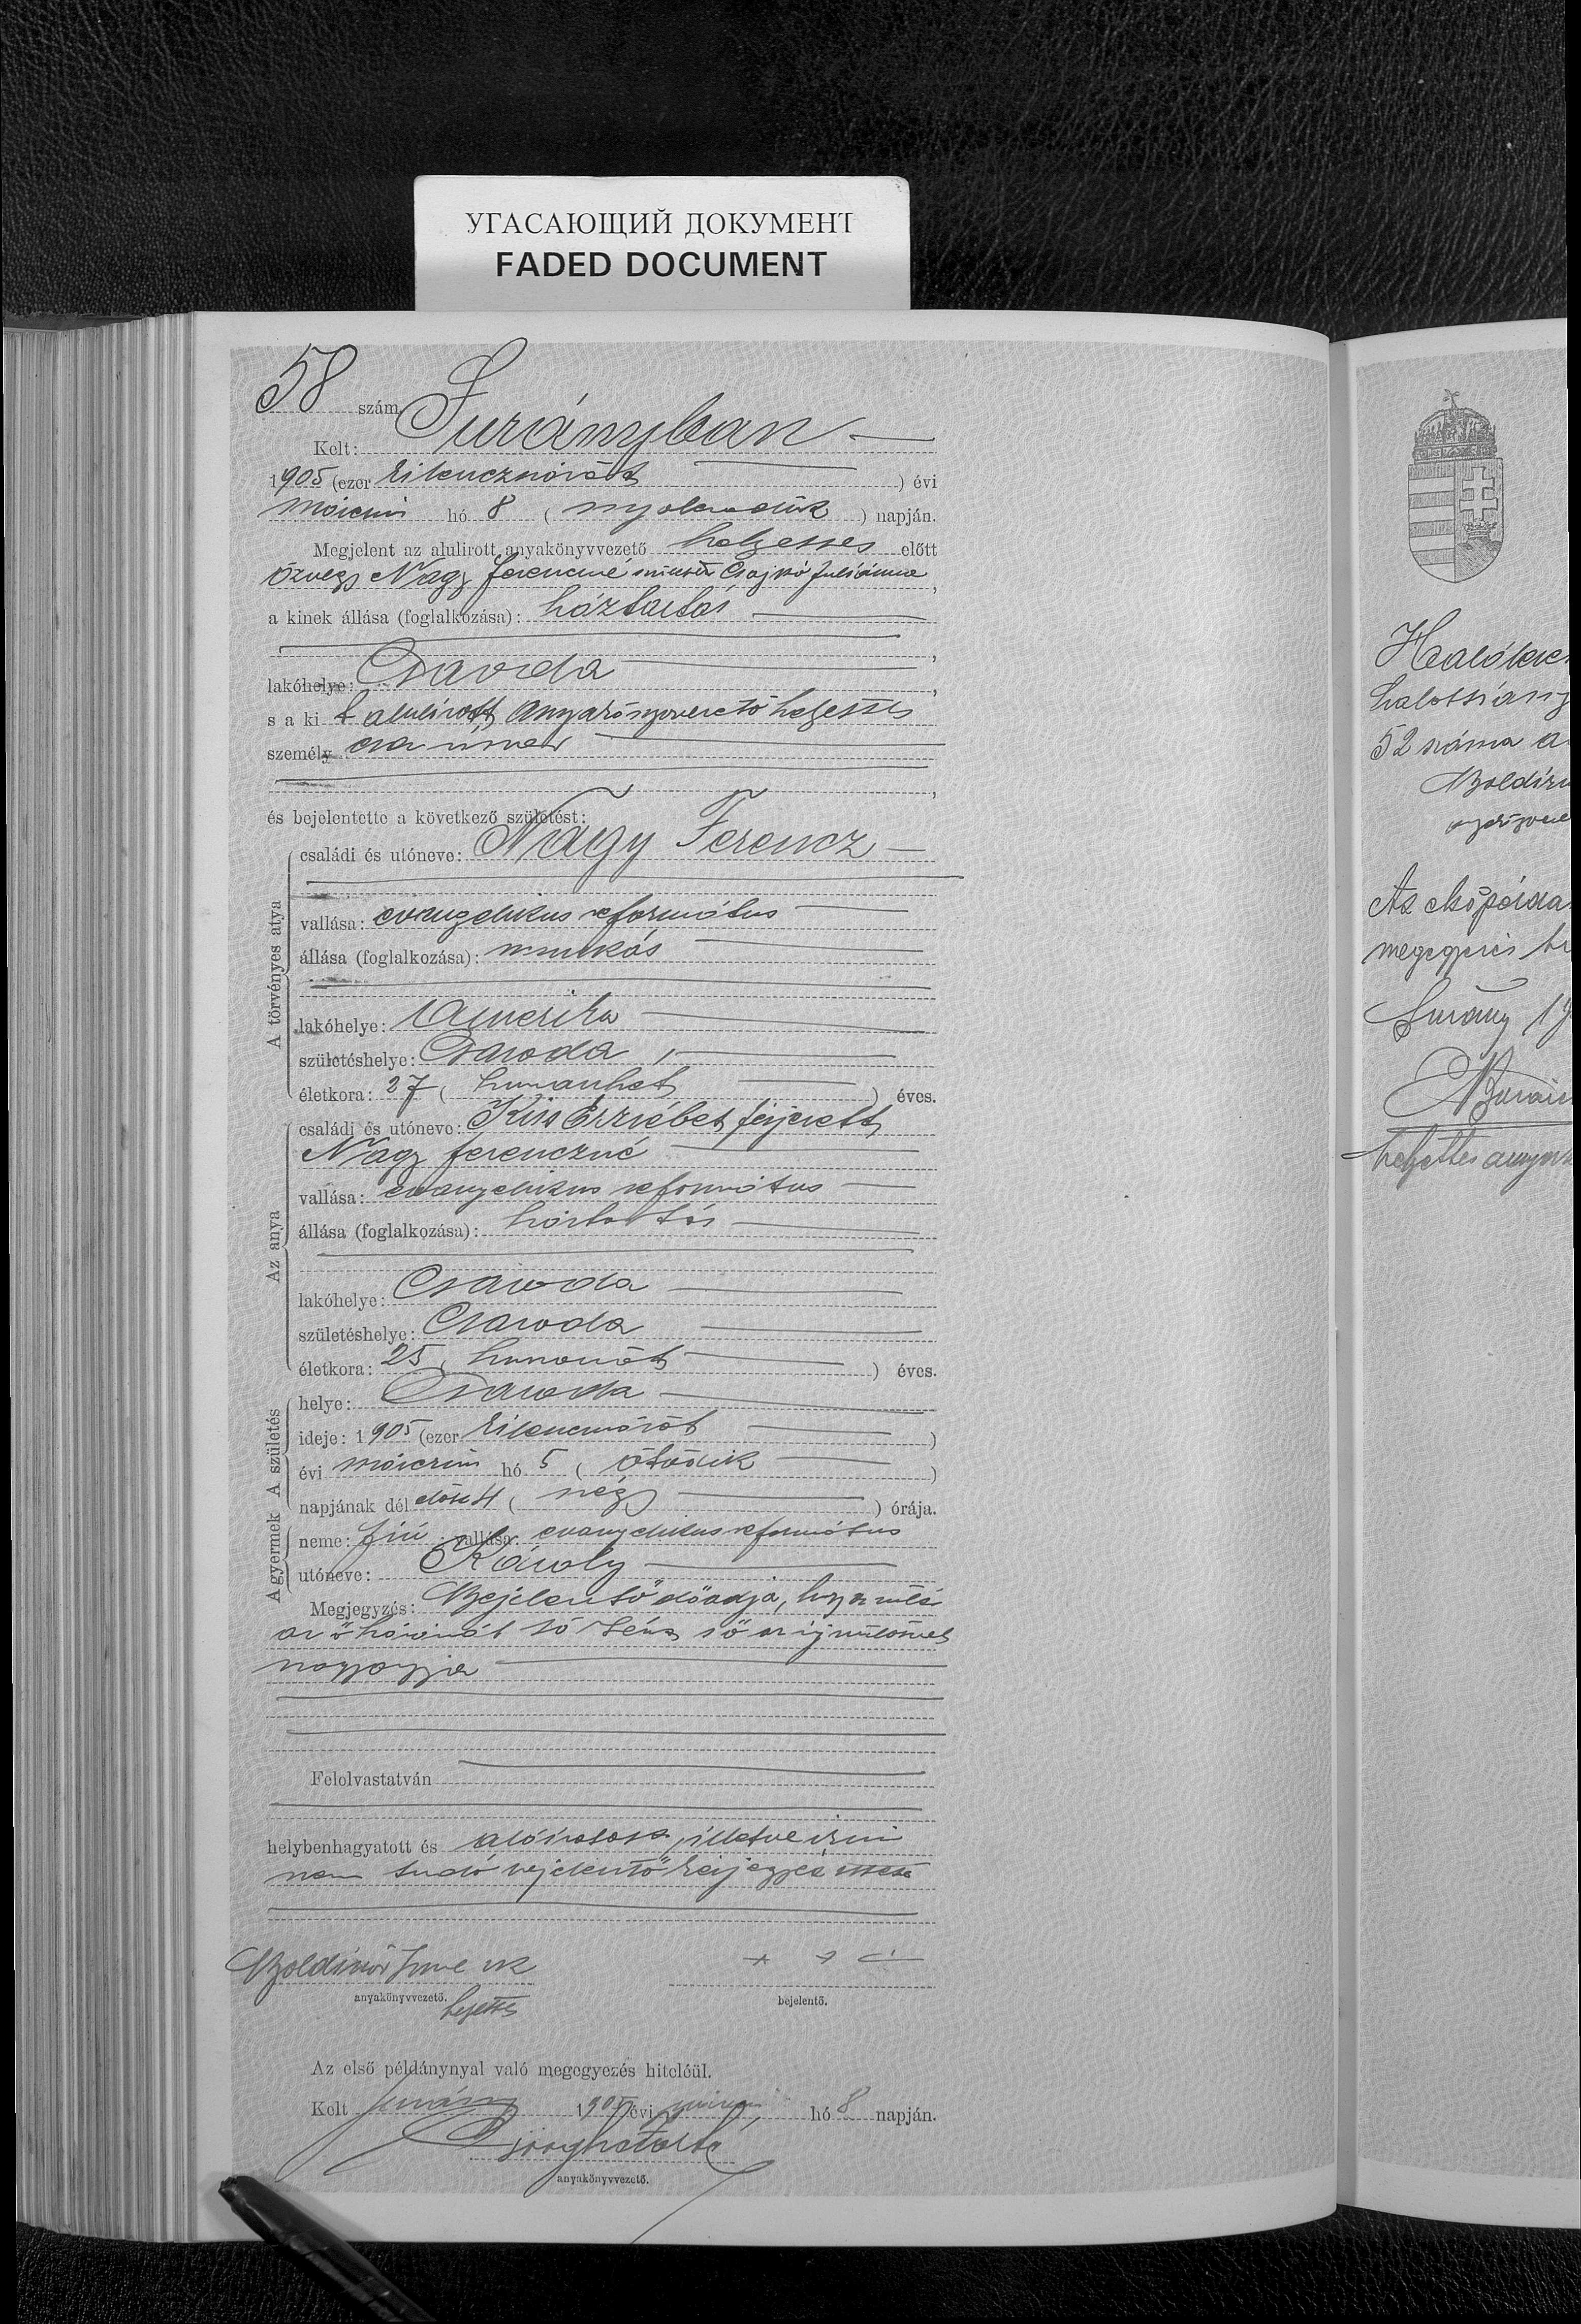 УГАСАЮЩИЙ ДОКУМЕНТ
FADED DOCUMENT
58 szám.
Kelt: Surányban
1905 (ezer kilenczszázöt ) évi
márczius hó 8 ( nyolczadik ) napján.
Megjelent az alulirott anyakönyvvezető helyettes előtt
özvegy Nagy Ferenczné született Csajkó Juliánna,
a kinek állása (foglalkozása): háztartás
,
lakóhelye: Csaroda,
s a ki t alulirott anyakönyvvezető helyettes
személyesen ismer
,
és bejelentette a következő születést:
A törvényes atya
családi és utóneve: Nagy Ferencz
vallása: evangelikus református
állása (foglalkozása): munkás
lakóhelye: Amerika
születéshelye: Csaroda
életkora: 27 ( huszonhét ) éves.
Az anya
családi és utóneve: Kiss Erzsébet férjezett
Nagy Ferenczné
vallása: evangelikus református
állása (foglalkozása): háztartás
lakóhelye: Csaroda
születéshelye: Csaroda
életkora: 25 ( huszonöt ) éves.
A születés
helye: Csaroda
ideje: 1905 (ezer kilenczszázöt )
évi márczius hó 5 ( ötödik )
napjának dél előtt 4 ( négy ) órája.
A gyermek
neme: fiú vallása: evangelikus református
utóneve: Károly
Megjegyzés: Bejelentő előadja, hogy a szülés
az ő házánál történt s ő az újszülöttnek
nagyanyja
Felolvastatván
helybenhagyatott és aláiratott, illetve irni
nem tudó bejelentő kézjegyével
Boldizsár Imre
anyakönyvvezető.
helyettes
+ + +
bejelentő.
Az első példánynyal való megegyezés hiteléül.
Kelt Surány 1905 évi márczius hó 8 napján.
anyakönyvvezető.
52 száma a
Az első példá
megegyezés hi
Surány 19
helyettes anyak